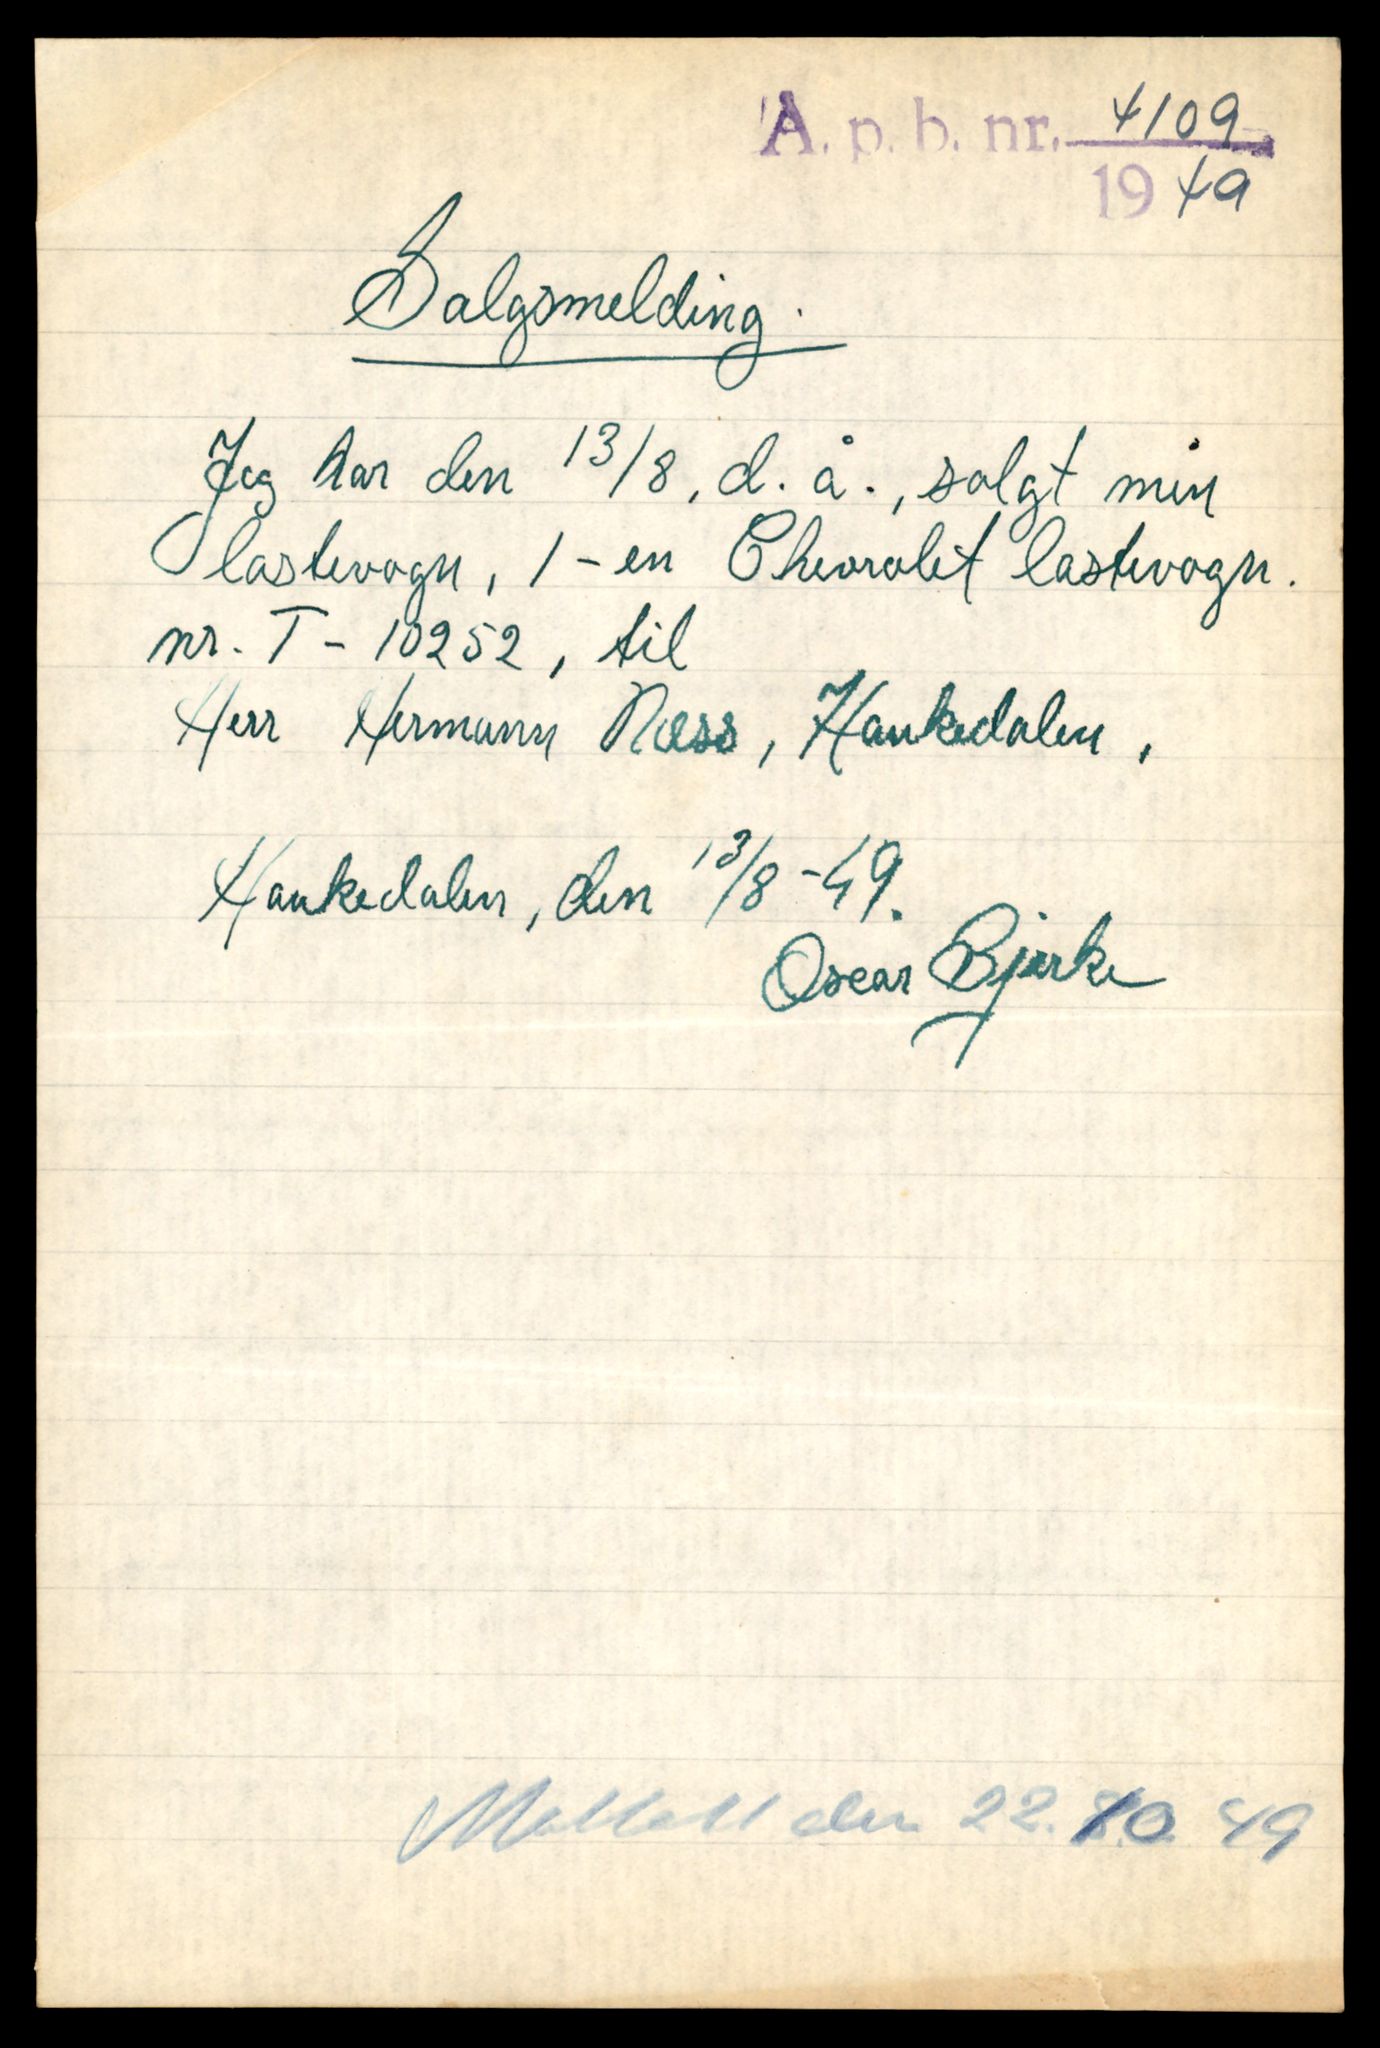 A. p. b. nr. 4109
1949
Salgsmelding.
Jeg har den 13/8, d. å., solgt min
lastevogn, 1-en Chevrolet lastevogn.
nr. T-10252, til
Herr Hermann Næss, Haukedalen,
Haukedalen, den 13/8-49.
Oscar Bjerke
den 22. 10. 49